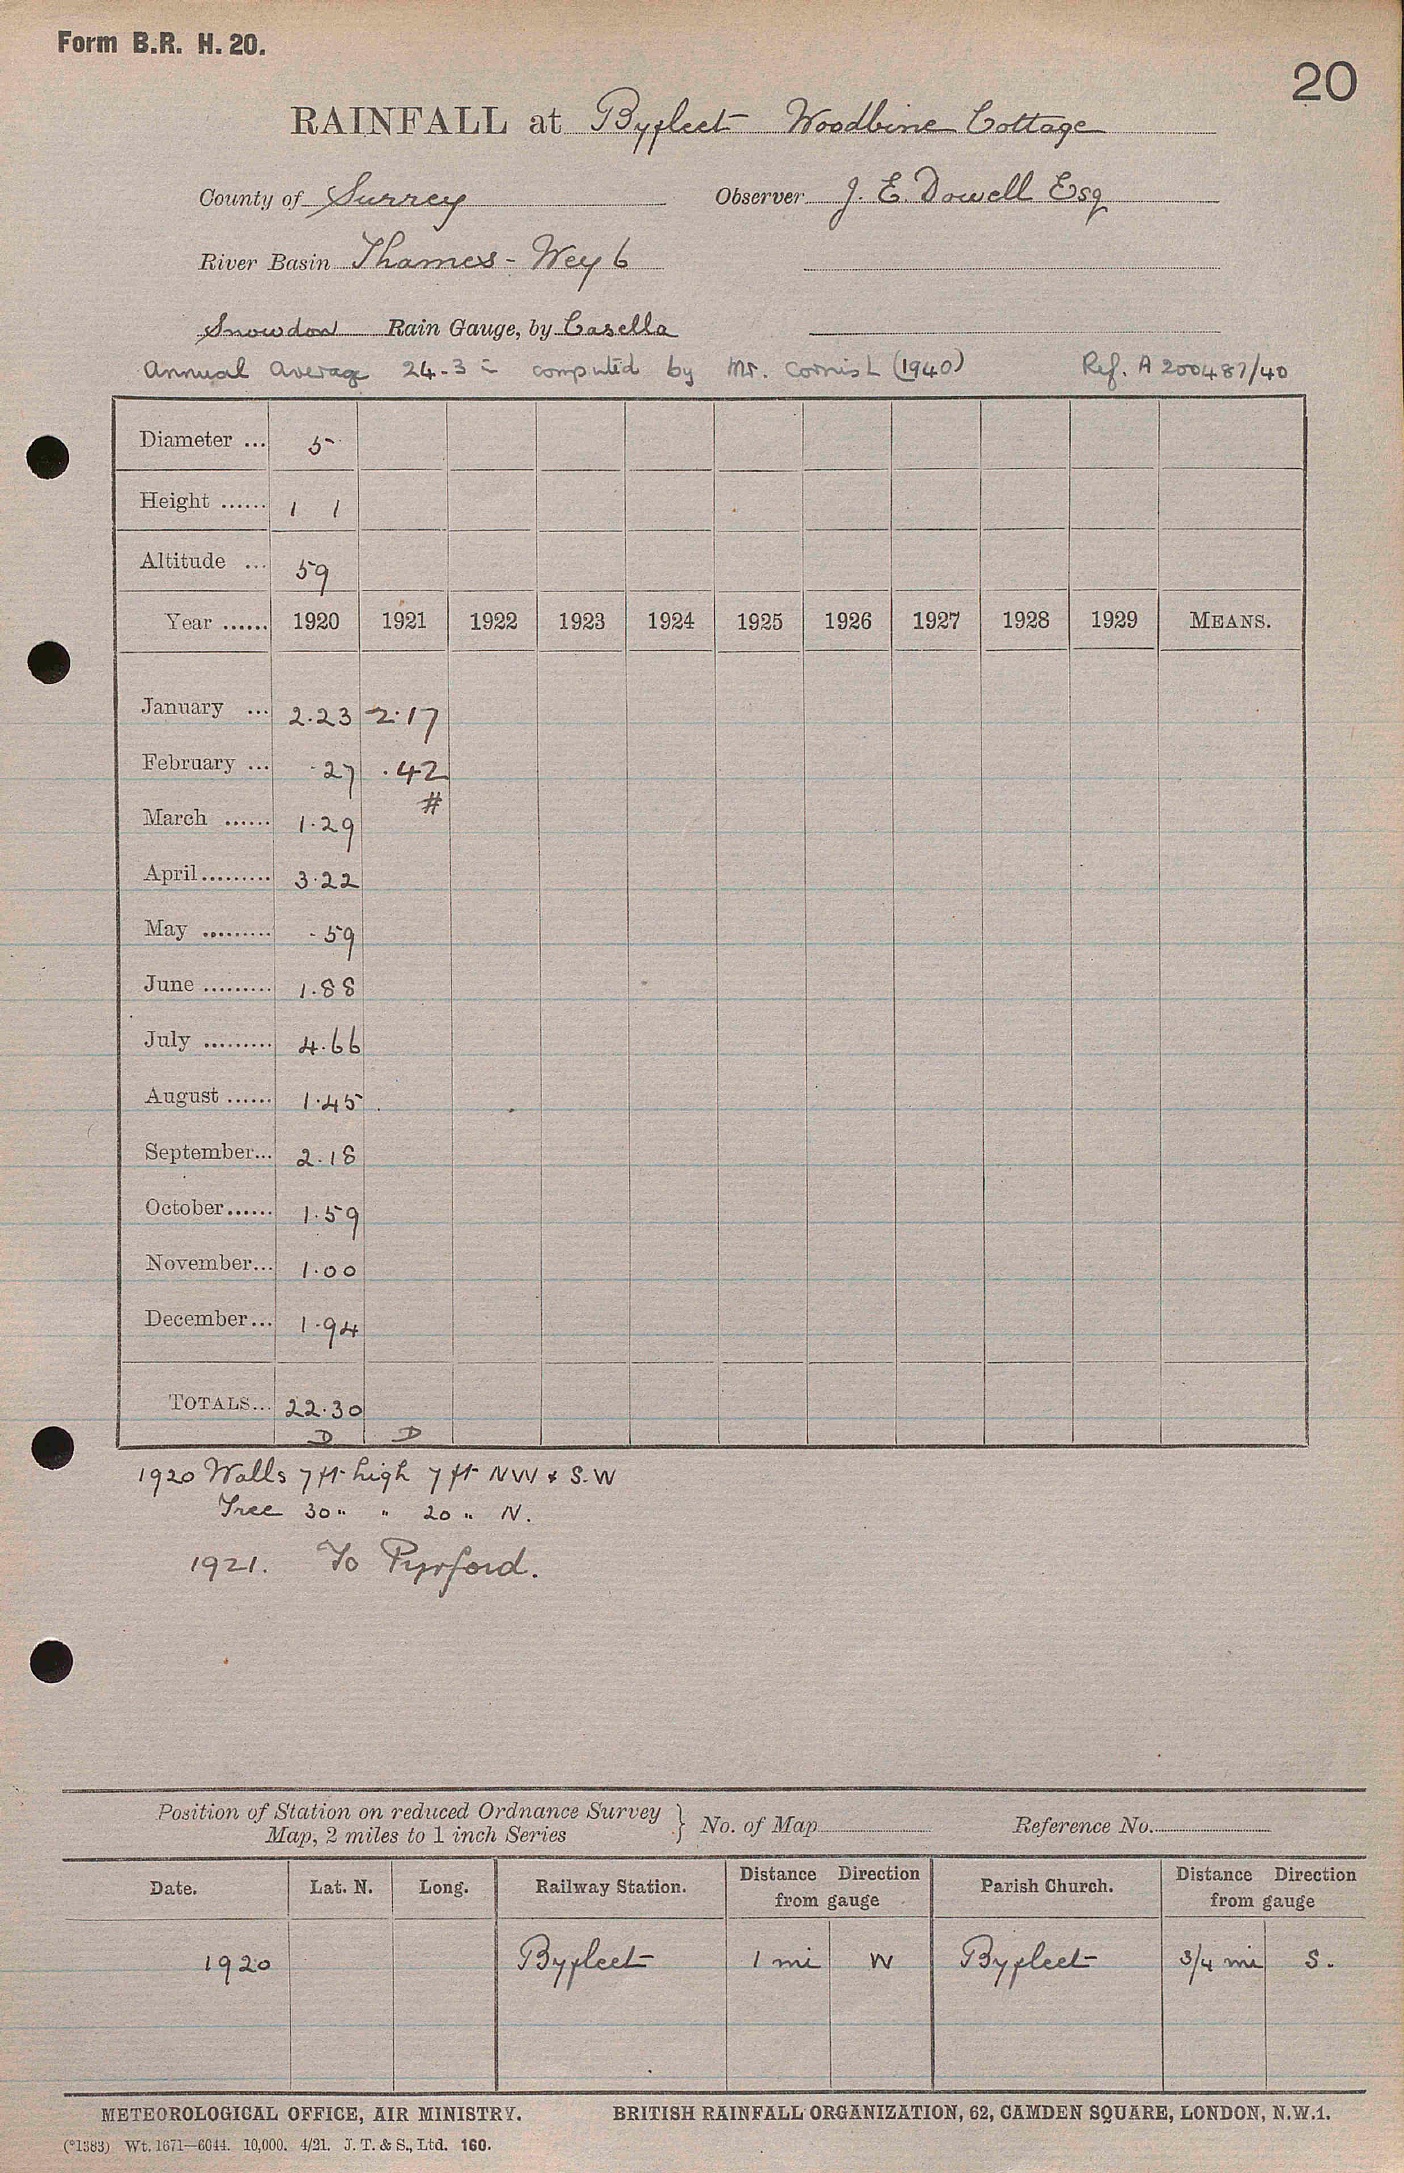 Form B.R. H. 20.
20
RAINFALL at Byfleet Woodbine Cottage
County of Surrey Observer J. E. Dowell Esq
River Basin Thames - Wey 6
Snowdon Rain Gauge, by Casella
Annual Average 24.3 in computed by Mr. Cornish (1940) Ref. A 200487/40
Diameter ... 5
Height ...... 1 1
Altitude ... 59
Year ...... 1920 1921 1922 1923 1924 1925 1926 1927 1928 1929 MEANS.
January ... 2.23 2.17
February ... .27 .42
#
March ...... 1.29
April......... 3.22
May ......... .59
June ......... 1.88
July ......... 4.66
August ...... 1.45
September... 2.18
October...... 1.59
November... 1.00
December... 1.94
TOTALS... 22.30
D D
1920 Walls 7 ft high 7 ft NW & S.W
Tree 30 " " 20 " N.
1921. To Pyrford.
Position of Station on reduced Ordnance Survey
Map, 2 miles to 1 inch Series } No. of Map Reference No.
Date. Lat. N. Long. Railway Station. Distance Direction from gauge Parish Church. Distance Direction from gauge
1920 Byfleet 1 mi W Byfleet 3/4 mi S.
METEOROLOGICAL OFFICE, AIR MINISTRY. BRITISH RAINFALL ORGANIZATION, 62, CAMDEN SQUARE, LONDON, N.W.1.
(*1383) Wt. 1671—6044. 10,000. 4/21. J. T. & S., Ltd. 160.